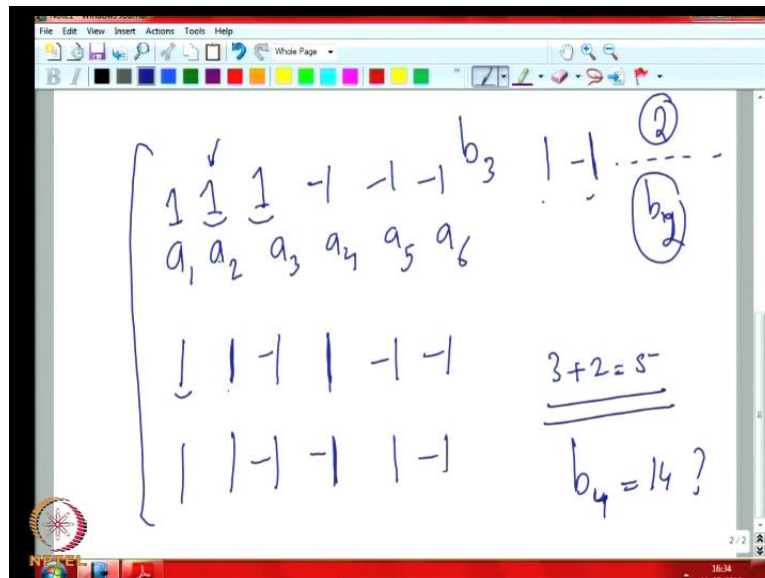 File Edit View Insert Actions Tools Help
Whole Page
B I
1 1 1 -1 -1 -1 b3 1 -1 ------ 2
a1 a2 a3 a4 a5 a6
1 1 -1 1 -1 -1
3+2=5
1 1 -1 -1 1 -1
b4 = 14 ?
NPTEL
2 / 2
16:34